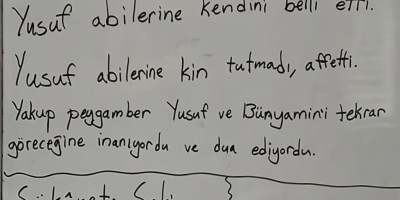 Yusuf abilerine kendini belli etti.
Yusuf abilerine kin tutmadı, affetti.
Yakup peygamber Yusuf ve Bünyamin'i tekrar
göreceğine inanıyordu ve dua ediyordu.